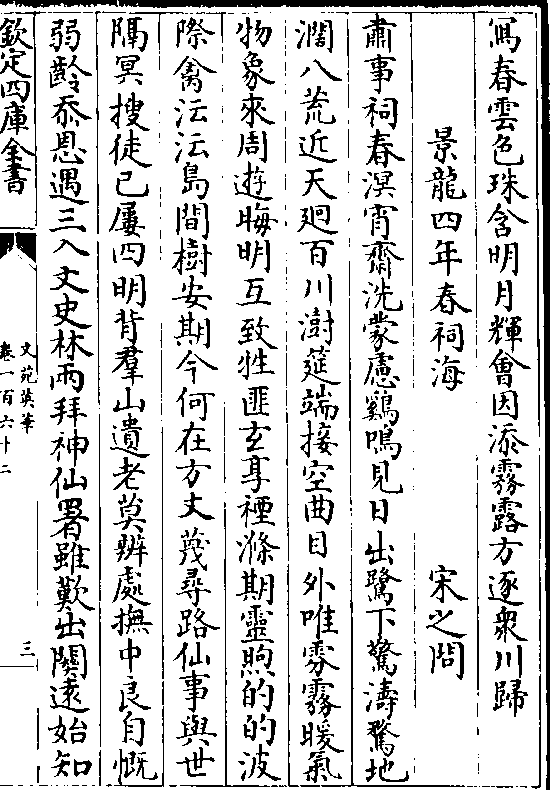 寫春雲色珠含明月輝會因添霧露方逐衆川歸
景龍四年春祠海 宋之問
肅事祠春溟宵齋洗蒙慮鷄鳴見日出鷺下驚濤鶩地
濶八荒近天廻百川澍筵端接空曲目外唯雰霧暖氣
物象來周遊晦明互致牲匪玄享禋滌期靈煦的的波
際禽沄沄島間樹安期今何在方丈蔑尋路仙事與世
隔冥搜徒已屢四明背羣山遺老莫辨處撫中良自慨
弱齡忝恩遇三入文史林兩拜神仙署雖歎出關遠始知
欽定四庫全書
文苑英華
卷一百六十二
三